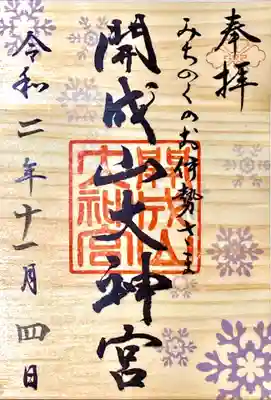 奉拝
みちのくのお伊勢さま
開成山大神宮
開成山
大神宮
令和二年十一月四日